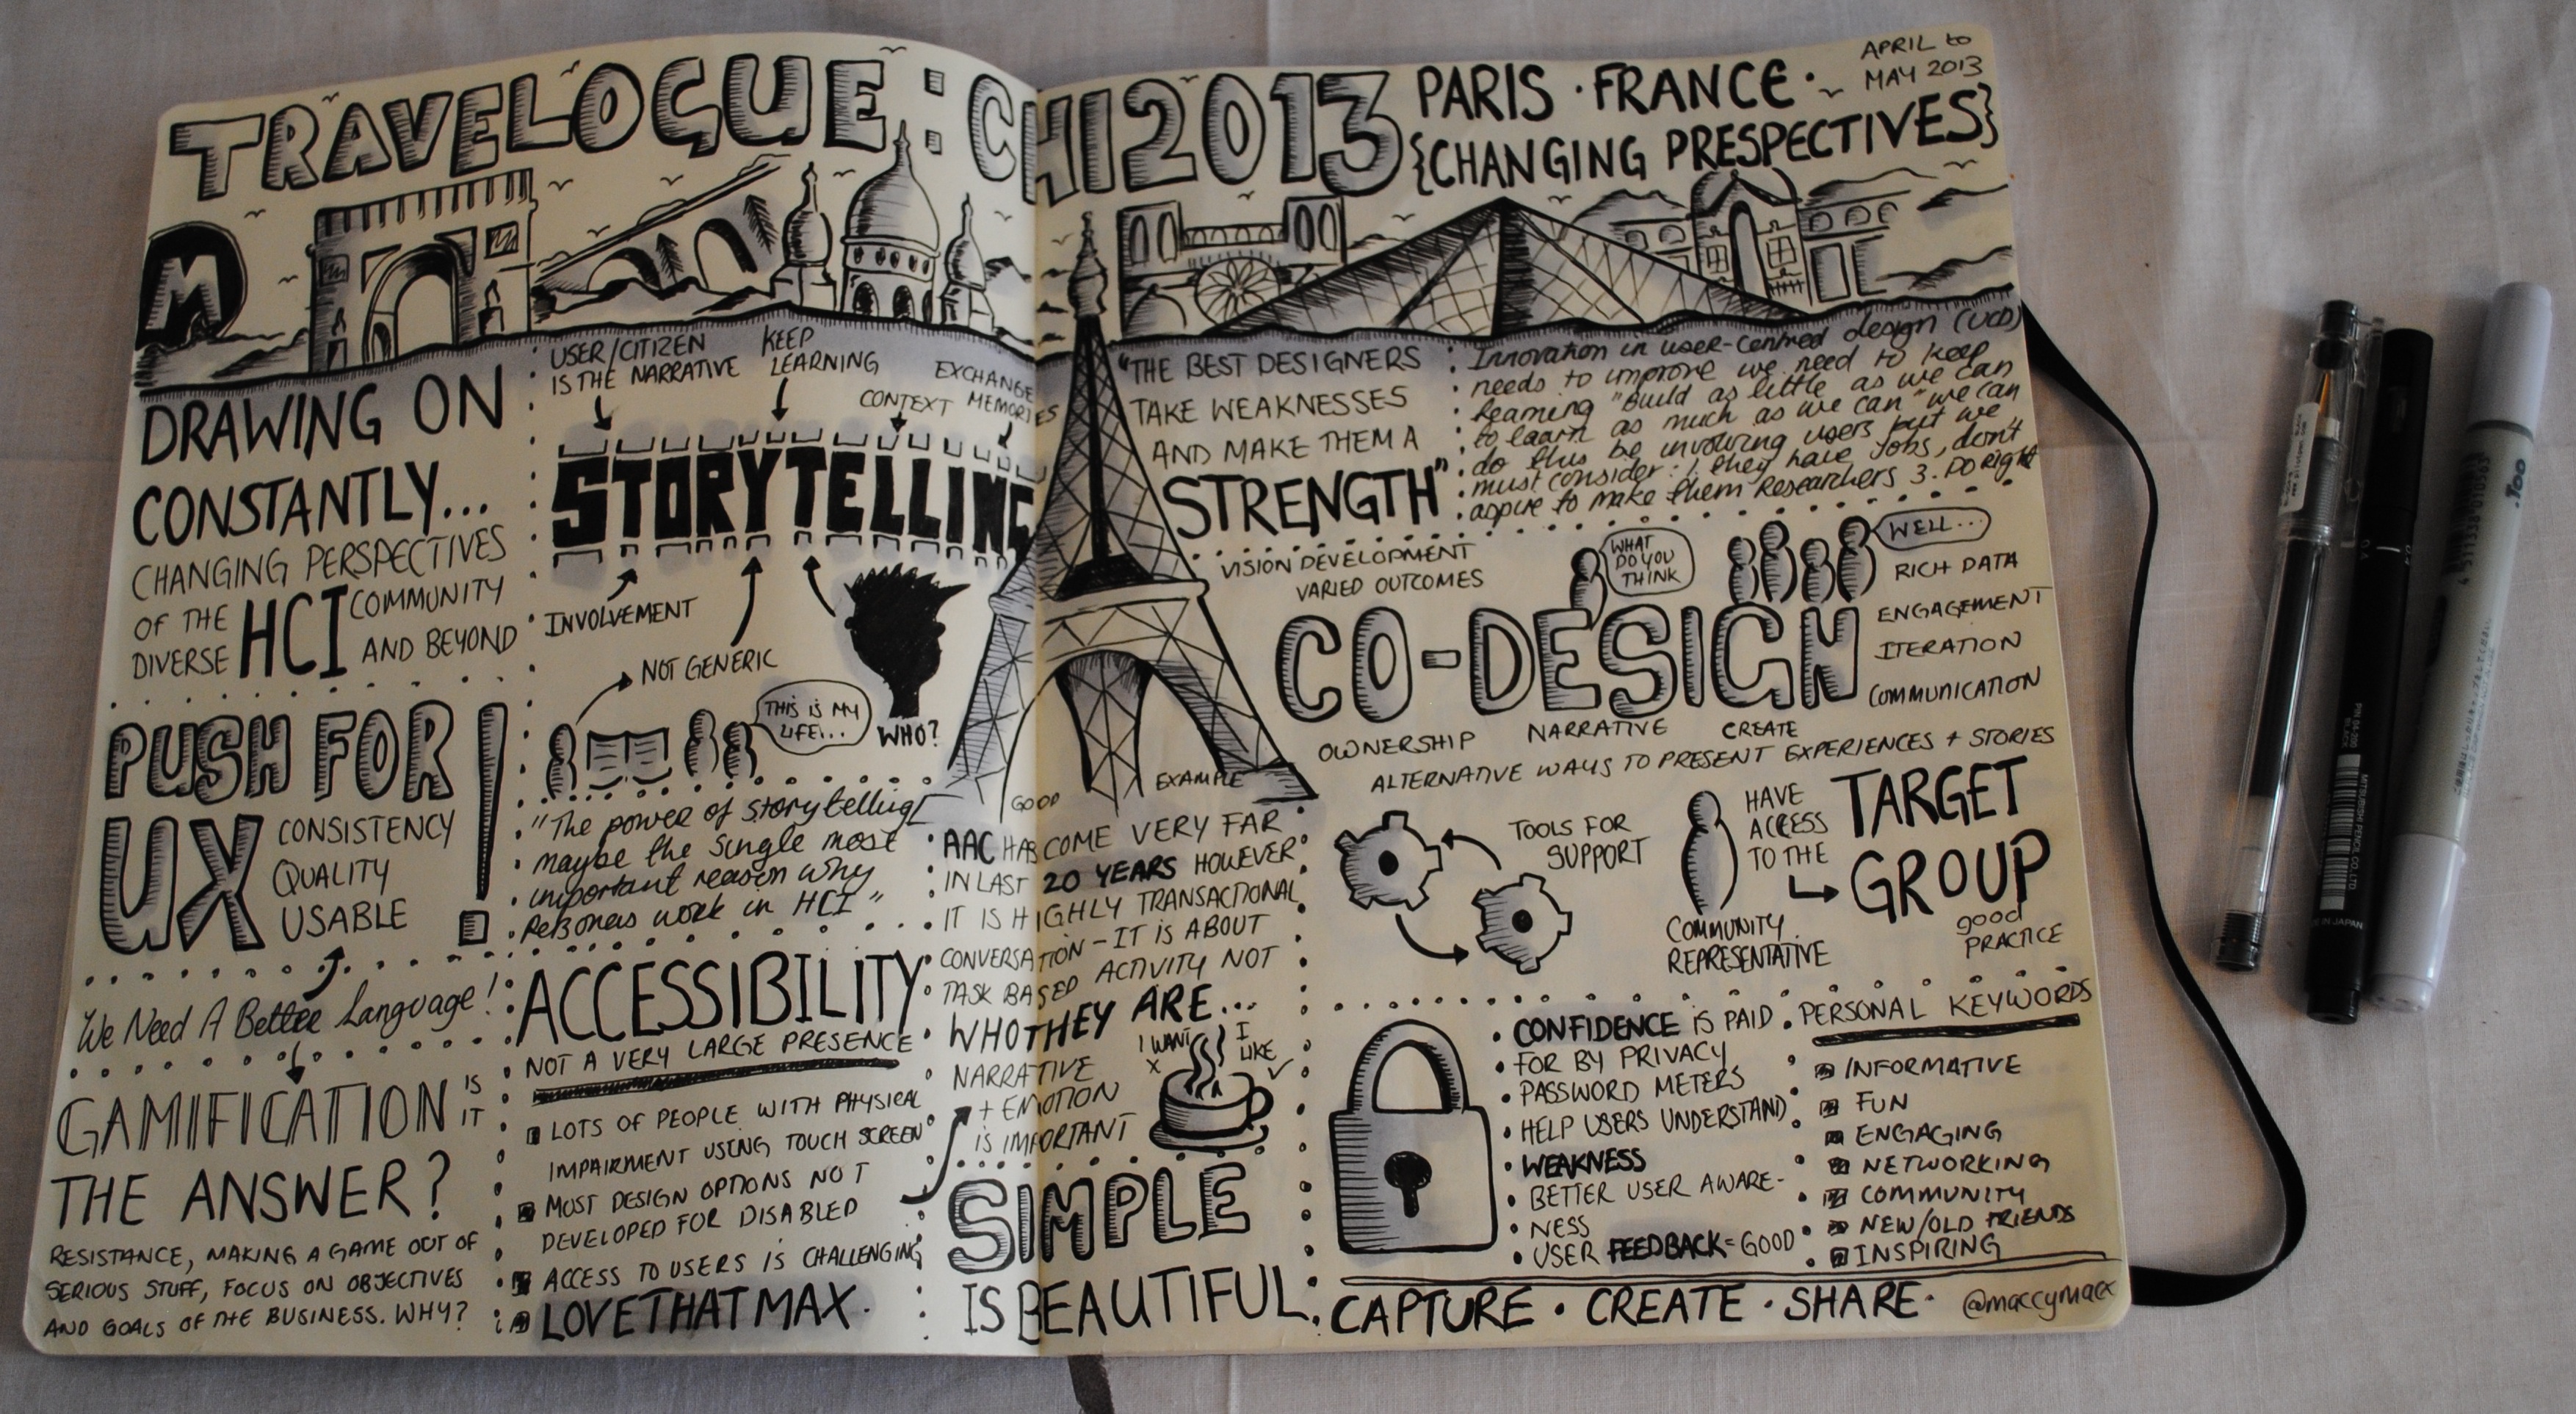 TRAVELOGUE: CHI2013
PARIS · FRANCE ·
APRIL to
MAY 2013
{CHANGING PRESPECTIVES}
M
DRAWING ON
CONSTANTLY...
CHANGING PERSPECTIVES
OF THE HCI COMMUNITY
DIVERSE AND BEYOND
PUSH FOR !
UX
CONSISTENCY
QUALITY
USABLE
We Need A Better Language!
GAMIFICATION IS
IT
THE ANSWER?
RESISTANCE, MAKING A GAME OUT OF
SERIOUS STUFF, FOCUS ON OBJECTIVES
AND GOALS OF THE BUSINESS. WHY?
USER/CITIZEN
IS THE NARRATIVE
KEEP
LEARNING
CONTEXT
EXCHANGE
MEMORIES
STORYTELLING
INVOLVEMENT
NOT GENERIC
THIS IS MY
LIFE...
WHO?
"The power of storytelling
maybe the single most
important reason why
Personas work in HCI"
ACCESSIBILITY
NOT A VERY LARGE PRESENCE
LOTS OF PEOPLE WITH PHYSICAL
IMPAIRMENT USING TOUCH SCREEN
MOST DESIGN OPTIONS NOT
DEVELOPED FOR DISABLED
ACCESS TO USERS IS CHALLENGING
LOVETHATMAX.
GOOD EXAMPLE
AAC HAS COME VERY FAR
IN LAST 20 YEARS HOWEVER
IT IS HIGHLY TRANSACTIONAL
CONVERSATION - IT IS ABOUT
TASK BASED ACTIVITY NOT
WHO THEY ARE...
NARRATIVE
+ EMOTION
IS IMPORTANT
I WANT
X
I
LIKE
✓
SIMPLE
IS BEAUTIFUL.
"THE BEST DESIGNERS
TAKE WEAKNESSES
AND MAKE THEM A
STRENGTH"
Innovation in user-centred design (UCD)
needs to improve we need to keep
learning "Build as little as we can
to learn as much as we can" we can
do this be involving users but we
must consider: 1. they have jobs, don't
aspire to make them Researchers 3. Do Right
VISION DEVELOPMENT
VARIED OUTCOMES
WHAT
DO YOU
THINK
WELL...
RICH DATA
ENGAGEMENT
ITERATION
COMMUNICATION
CO-DESIGN
OWNERSHIP NARRATIVE CREATE
ALTERNATIVE WAYS TO PRESENT EXPERIENCES + STORIES
TOOLS FOR
SUPPORT
COMMUNITY
REPRESENTATIVE
HAVE
ACCESS
TO THE
TARGET
GROUP
good
PRACTICE
CONFIDENCE IS PAID
FOR BY PRIVACY
PASSWORD METERS
HELP USERS UNDERSTAND
WEAKNESS
BETTER USER AWARE-
NESS
USER FEEDBACK = GOOD
PERSONAL KEYWORDS
INFORMATIVE
FUN
ENGAGING
NETWORKING
COMMUNITY
NEW/OLD FRIENDS
INSPIRING
CAPTURE · CREATE · SHARE ·
@maccymacx
.Too
MITSUBISHI PENCIL CO., LTD
IN JAPAN